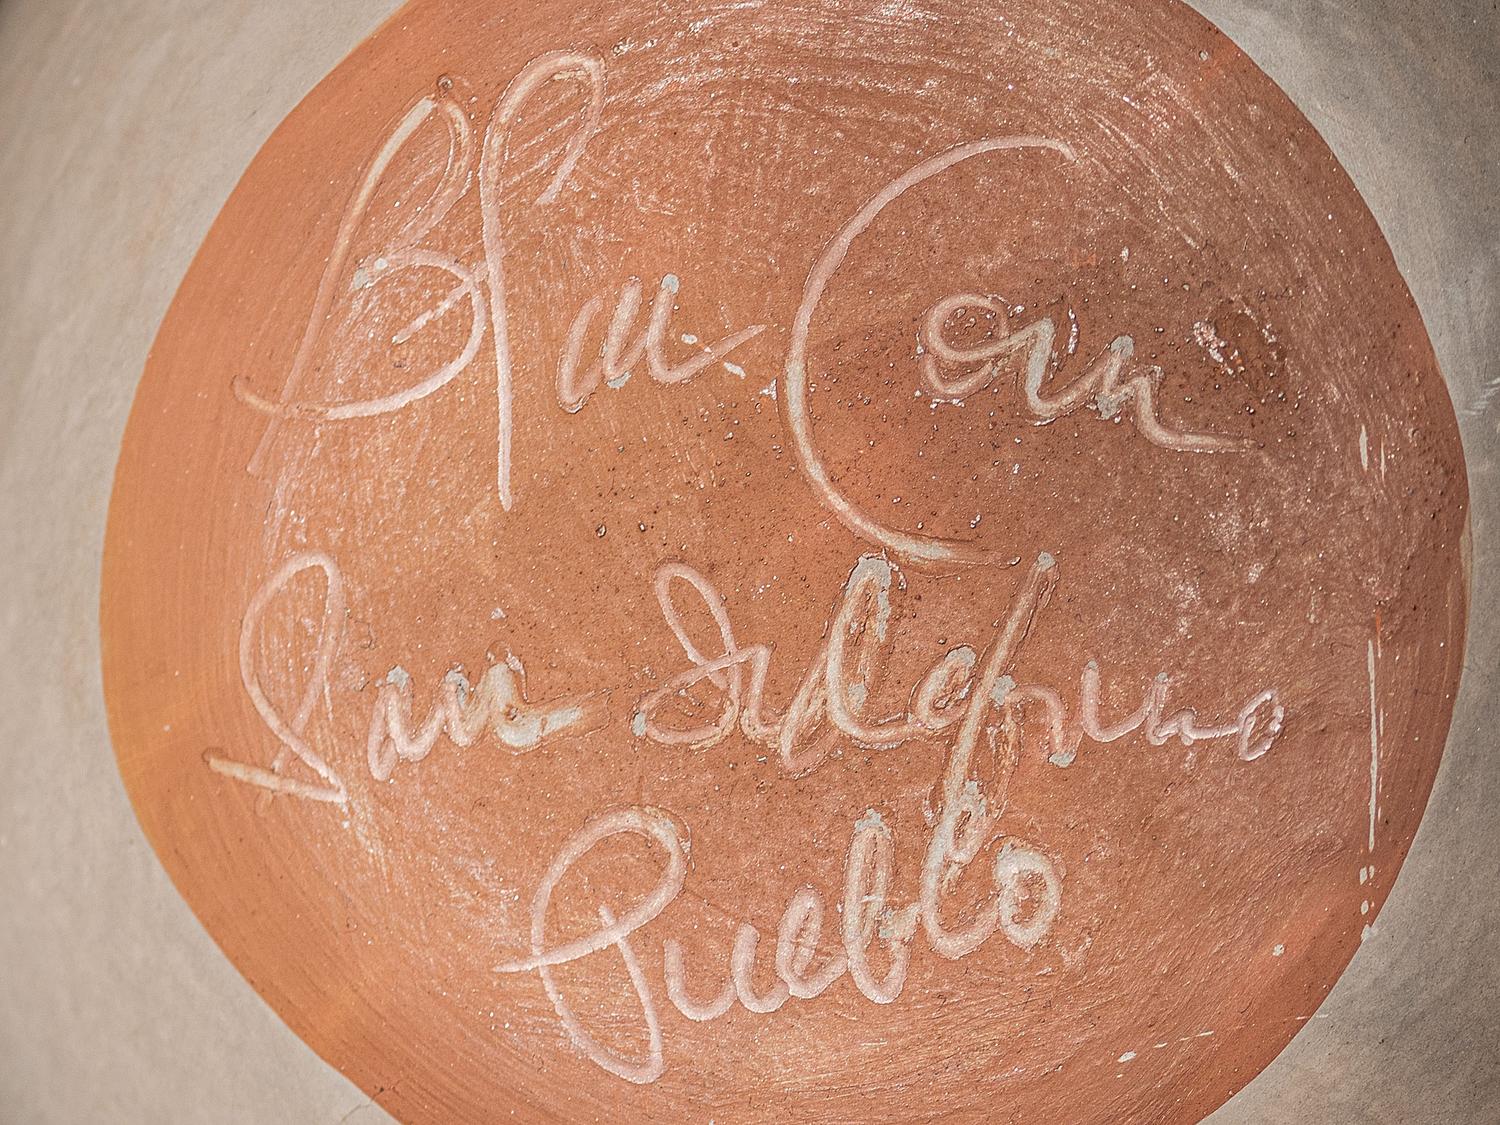 Blue Corn
San Ildefonso
Pueblo